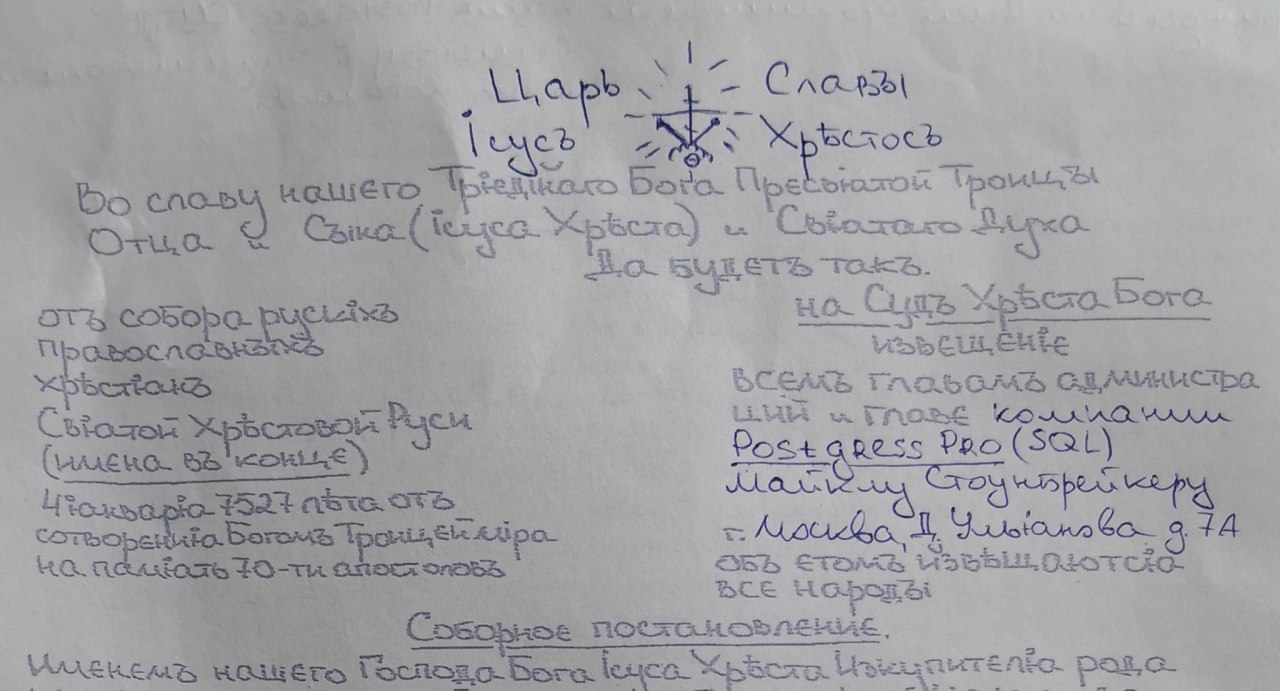 Царь Славы
Ісусъ Хрѣстосъ
Во славу нашего Трїедінаго Бога Пресвіатой Троицы
Отца и Сына (Ісуса Хрѣста) и Свіатаго Духа
Да будетъ такъ.
на Судъ Хрѣста Бога
извѣщеніе
отъ собора рускіхъ
православныхъ
хрѣстіанъ
Свіатой Хрѣстовой Руси
(имена въ конце)
4 іанваріа 7527 лѣта отъ
сотвореніа Богомъ Троицей міра
на паміать 70-ти апостоловъ
всемъ главамъ администра
ций и главе компании
Postgress Pro (SQL)
Майклу Стоунбрейкеру
г. Москва, Д. Ульіанова д. 7А
объ етомъ извѣщаютсіа
все народы
Соборное постановление.
Именемъ нашего Господа Бога Ісуса Хрѣста Изкупителіа рода